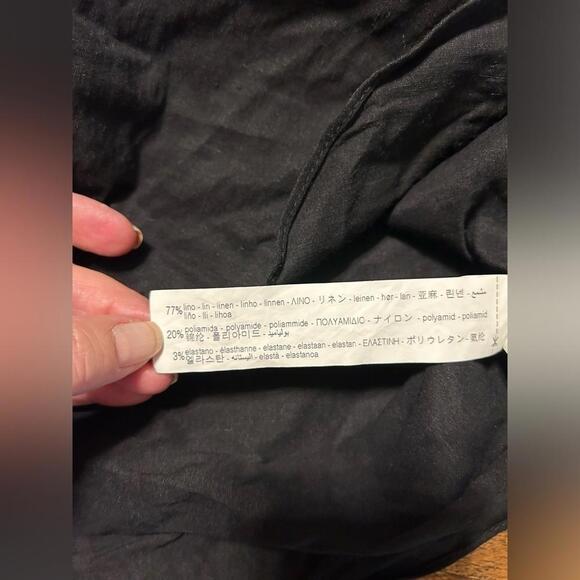 77% lino - lin - linen - linho - linnen - ΛΙΝΟ - リネン - leinen - hør - lan - 亚麻 - 린넨 -
liño - lli - lihoa
20% poliamida - polyamide - poliammide - ΠΟΛΥΑΜΙΔΙΟ - ナイロン - polyamid - poliamid
锦纶 - 폴리아미드 - بولياميد
3% elastano - élasthanne - elastane - elastaan - elastan - ΕΛΑΣΤΙΝΗ - ポリウレタン - 氨纶
엘라스탄 - اليستانه - elastà - elastanoa